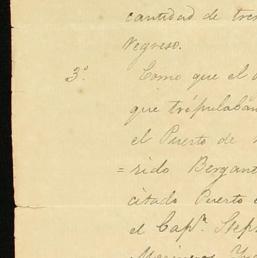 cantidad de tre
regreso.
3º Como que el
que tripulaban
el Puerto de
=rido Bergant
citado Puerto
el Capⁿ. Step
Marineros